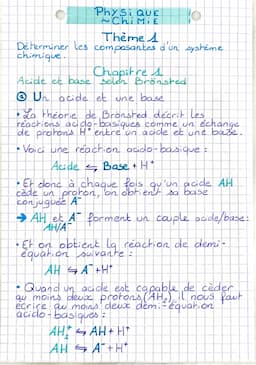 PHYSIQUE
~CHIMIE
Thème 1
Déterminer les composantes d'un système
chimique.
Chapitre 1
Acide et base selon Brönsted
① Un acide et une base
• La théorie de Brönsted décrit les
réactions acido-basiques comme un échange
de protons H⁺ entre un acide et une base.
• Voici une réaction acido-basique :
Acide ⇆ Base + H⁺
• Et donc à chaque fois qu'un acide AH
cède un proton, on obtient sa base
conjuguée A⁻
→ AH et A⁻ forment un couple acide/base:
AH/A⁻
• Et on obtient la réaction de demi-
équation suivante :
AH ⇆ A⁻ + H⁺
• Quand un acide est capable de céder
au moins deux protons (AH₂) il nous faut
écrire au moins deux demi-équation
acido-basiques :
AH₂⁺ ⇆ AH + H⁺
AH ⇆ A⁻ + H⁺